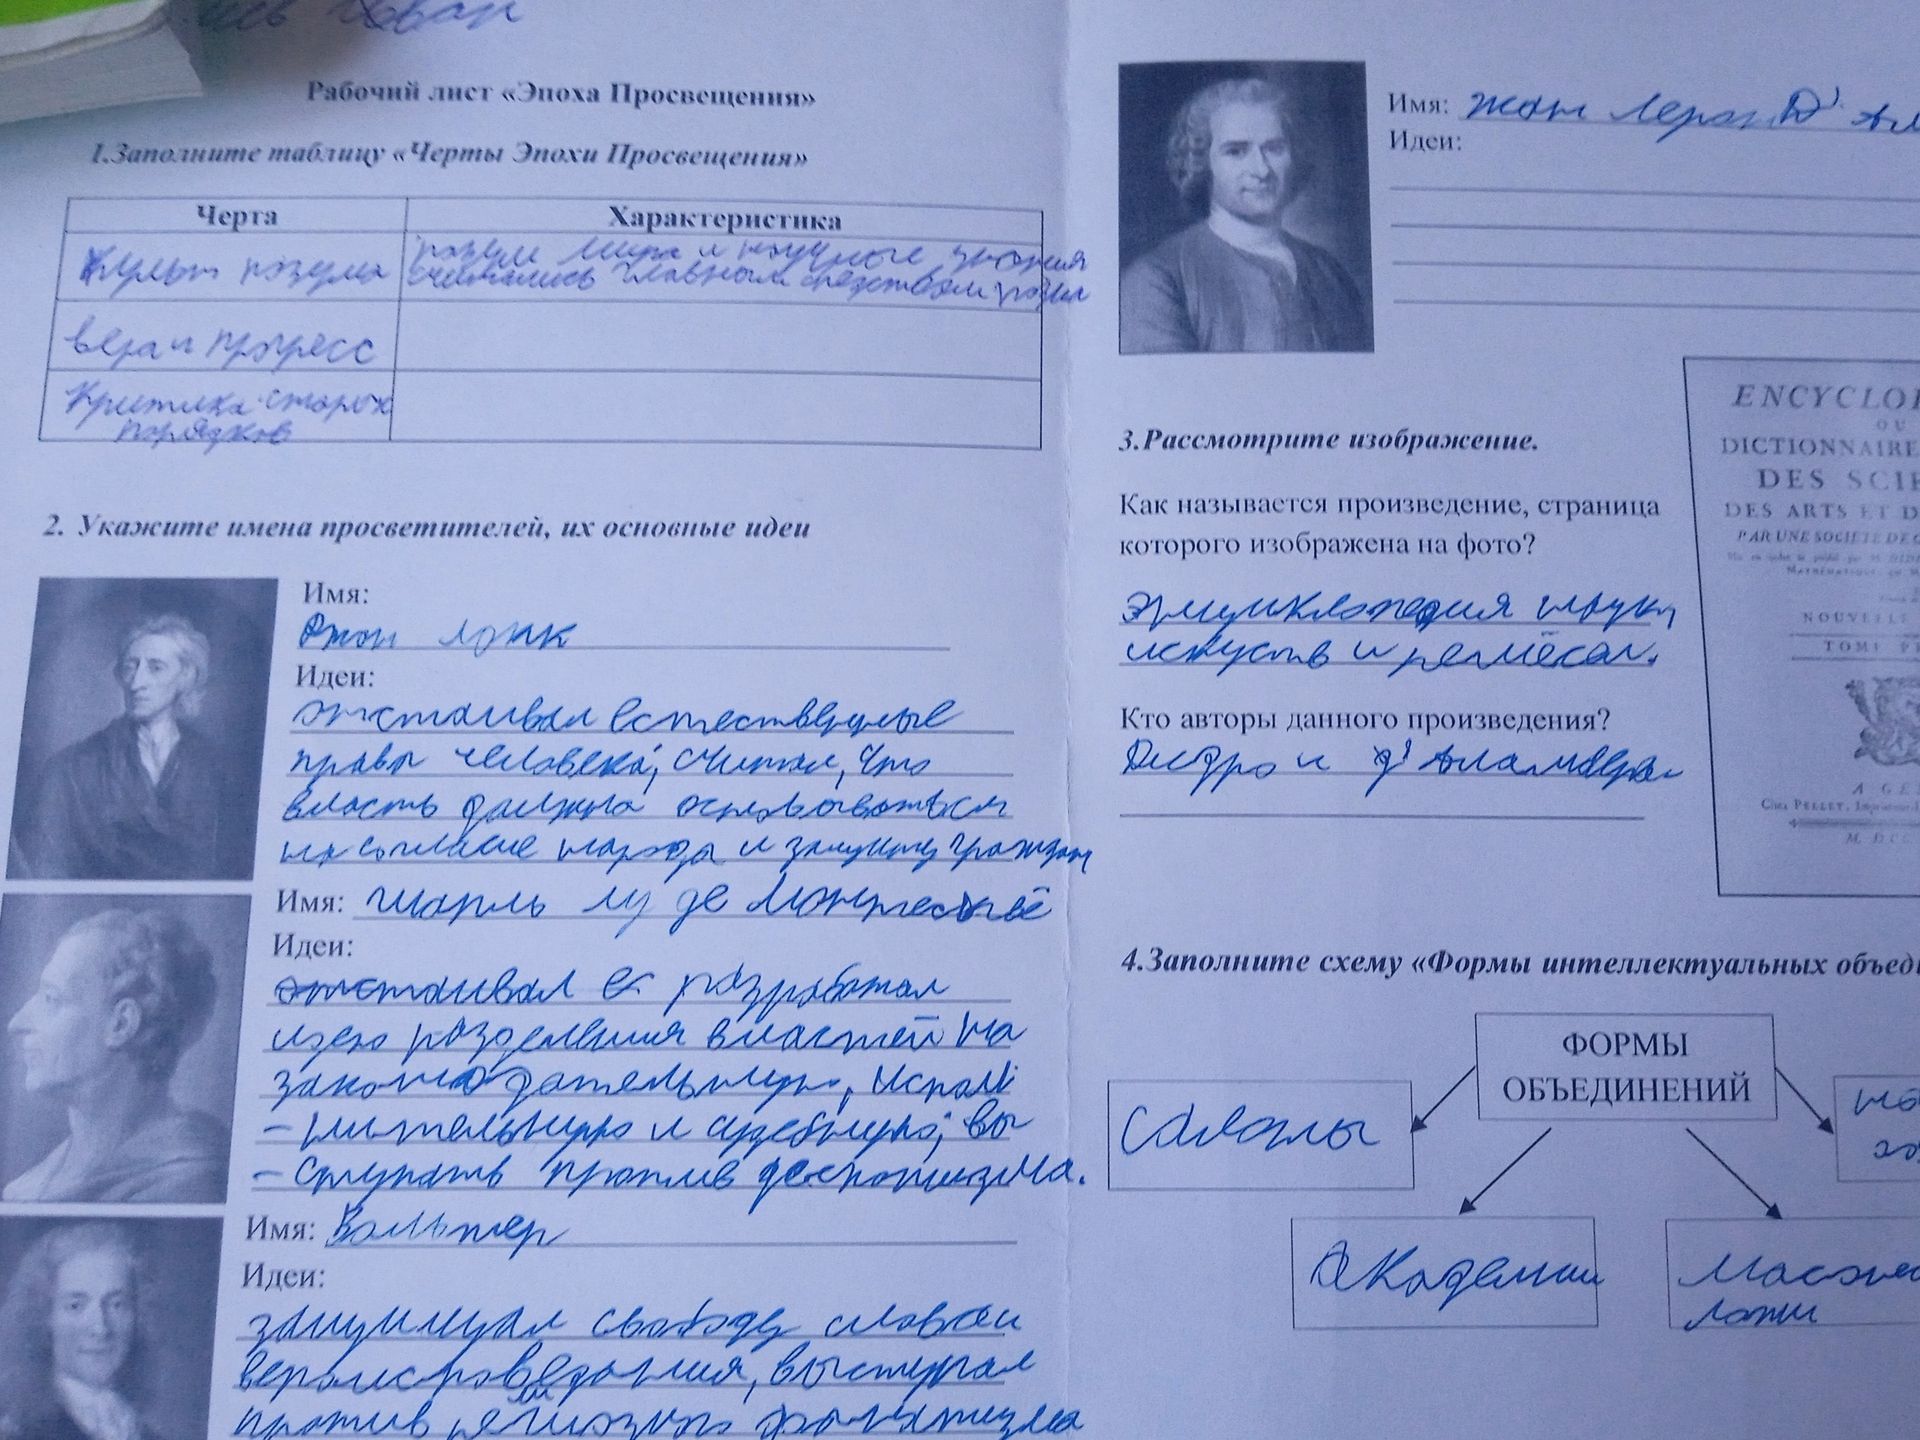 Рабочий лист «Эпоха Просвещения»
1.Заполните таблицу «Черты Эпохи Просвещения»
Черта
Характеристика
Культ разума
разум мира и научные знания
считались главным средством
вера и прогресс
Критика старых
порядков
2. Укажите имена просветителей, их основные идеи
Имя:
Джон Локк
Идеи:
отстаивал естественные
права человека; считал, что
власть должна основываться
на согласие народа и защиту граждан
Имя: Шарль Луи де Монтескьё
Идеи:
отстаивал ес разработал
идею разделения властей на
законодательную, испол
- нительную и судебную; вы
- ступать против деспотизма.
Имя: Вольтер
Идеи:
защищал свободу слова и
вероисповедания, выступал
против религиозного фанатизма
Имя: Жан Лерон Д'Ал
Идеи:
3.Рассмотрите изображение.
Как называется произведение, страница
которого изображена на фото?
Энциклопедия наук,
искуств и ремёсел.
Кто авторы данного произведения?
Дидро и д'Аламбера
ENCYCLOP
OU
DICTIONNAIRE
DES SCIE
DES ARTS ET D
PAR UNE SOCIETE DE G
NOUVELLE
TOME PR
A GE
Chez PELLET,
M. DCC
4.Заполните схему «Формы интеллектуальных объеди
ФОРМЫ
ОБЪЕДИНЕНИЙ
Салоны
Академии
ложи